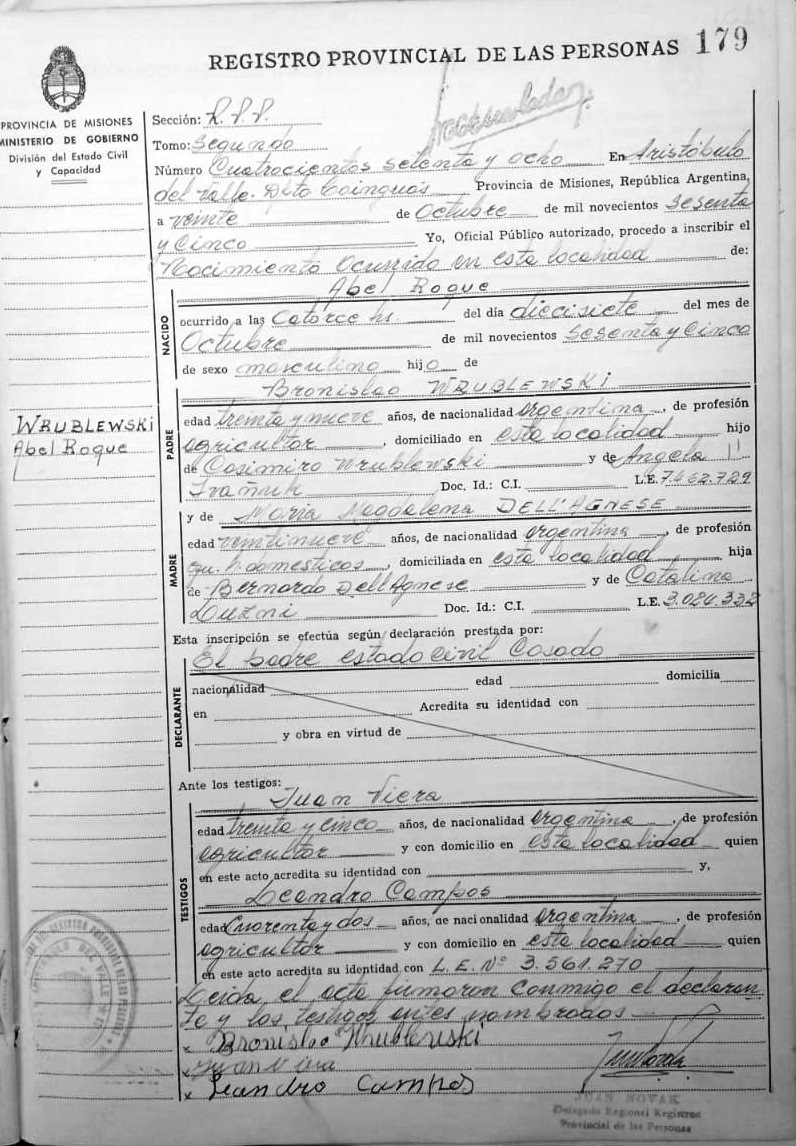 REGISTRO PROVINCIAL DE LAS PERSONAS 179
PROVINCIA DE MISIONES
MINISTERIO DE GOBIERNO
División del Estado Civil
y Capacidad
Sección: R.P.P.
Tomo: Segundo
Número Cuatrocientos setenta y ocho En Aristóbulo
del Valle. Dpto Cainguás Provincia de Misiones, República Argentina,
a veinte de Octubre de mil novecientos Sesenta
y Cinco Yo, Oficial Público autorizado, procedo a inscribir el
Nacimiento Ocurrido en esta localidad de:
Abel Roque
NACIDO
ocurrido a las Catorce hs. del día diecisiete del mes de
Octubre de mil novecientos Sesenta y Cinco
de sexo masculino hijo de
Bronislao WRUBLEWSKI
WRUBLEWSKI
Abel Roque
PADRE
edad treinta y nueve años, de nacionalidad argentina, de profesión
agricultor, domiciliado en esta localidad hijo
de Casimiro Wrublewski y de Angela
Doc. Id.: C.I. L.E. 7.462.729
y de Maria Magdalena DELL'AGNESE
MADRE
edad veintinueve años, de nacionalidad argentina, de profesión
qu. h. domesticos, domiciliada en esta localidad hija
de Bernardo Dell'Agnese y de Catalina
Doc. Id.: C.I. L.E. 3.024.332
Esta inscripción se efectúa según declaración prestada por:
El padre estado civil Casado
DECLARANTE
nacionalidad edad domicilia
en Acredita su identidad con
y obra en virtud de
Ante los testigos:
Juan Viera
TESTIGOS
edad treinta y cinco años, de nacionalidad argentina, de profesión
agricultor y con domicilio en esta localidad quien
en este acto acredita su identidad con y,
Leandro Campos
edad Cuarenta y dos años, de nacionalidad argentina, de profesión
agricultor y con domicilio en esta localidad quien
en este acto acredita su identidad con L.E. Nº 3.561.270
Leida, el acta firmaron conmigo el declaran
te y los testigos antes nombrados
x Bronislao Wrublewski
x Juan Viera
x Leandro Campos
JUAN NOVAK
Delegado Regional Registro
Provincial de las Personas